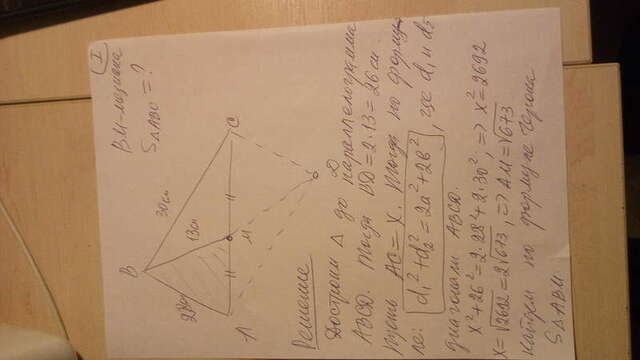 I
BM - медиана
S△ABC = ?
B
28см
13см
30см
A
M
C
D
Решение
Достроим △ до параллелограмма
ABCD. Тогда BD = 2·13 = 26 см.
Пусть AC = x. Тогда по форму-
ле: d₁² + d₂² = 2a² + 2b², где d₁ и d₂
диагонали ABCD.
x² + 26² = 2·28² + 2·30², => x² = 2692
x = √2692 = 2√673, => AM = √673
Найдем по формуле Герона
S△ABM